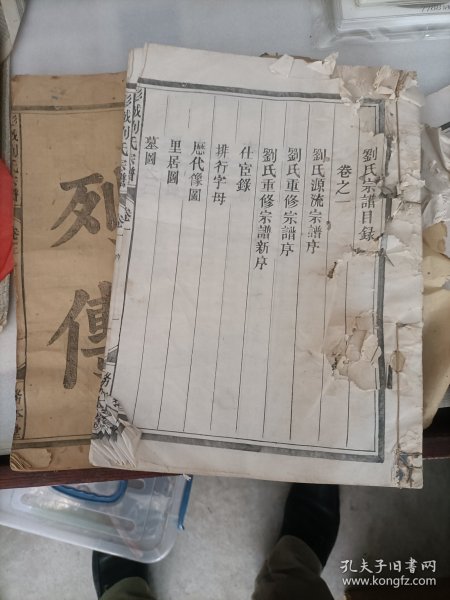 劉氏宗譜目錄
卷之一
劉氏源流宗譜序
劉氏重修宗譜序
劉氏重修宗譜新序
仕宦錄
排行字母
歷代像圖
里居圖
墓圖
彭城劉氏宗譜
卷一
彭城劉氏宗譜
列傳
孔夫子旧书网
www.kongfz.com